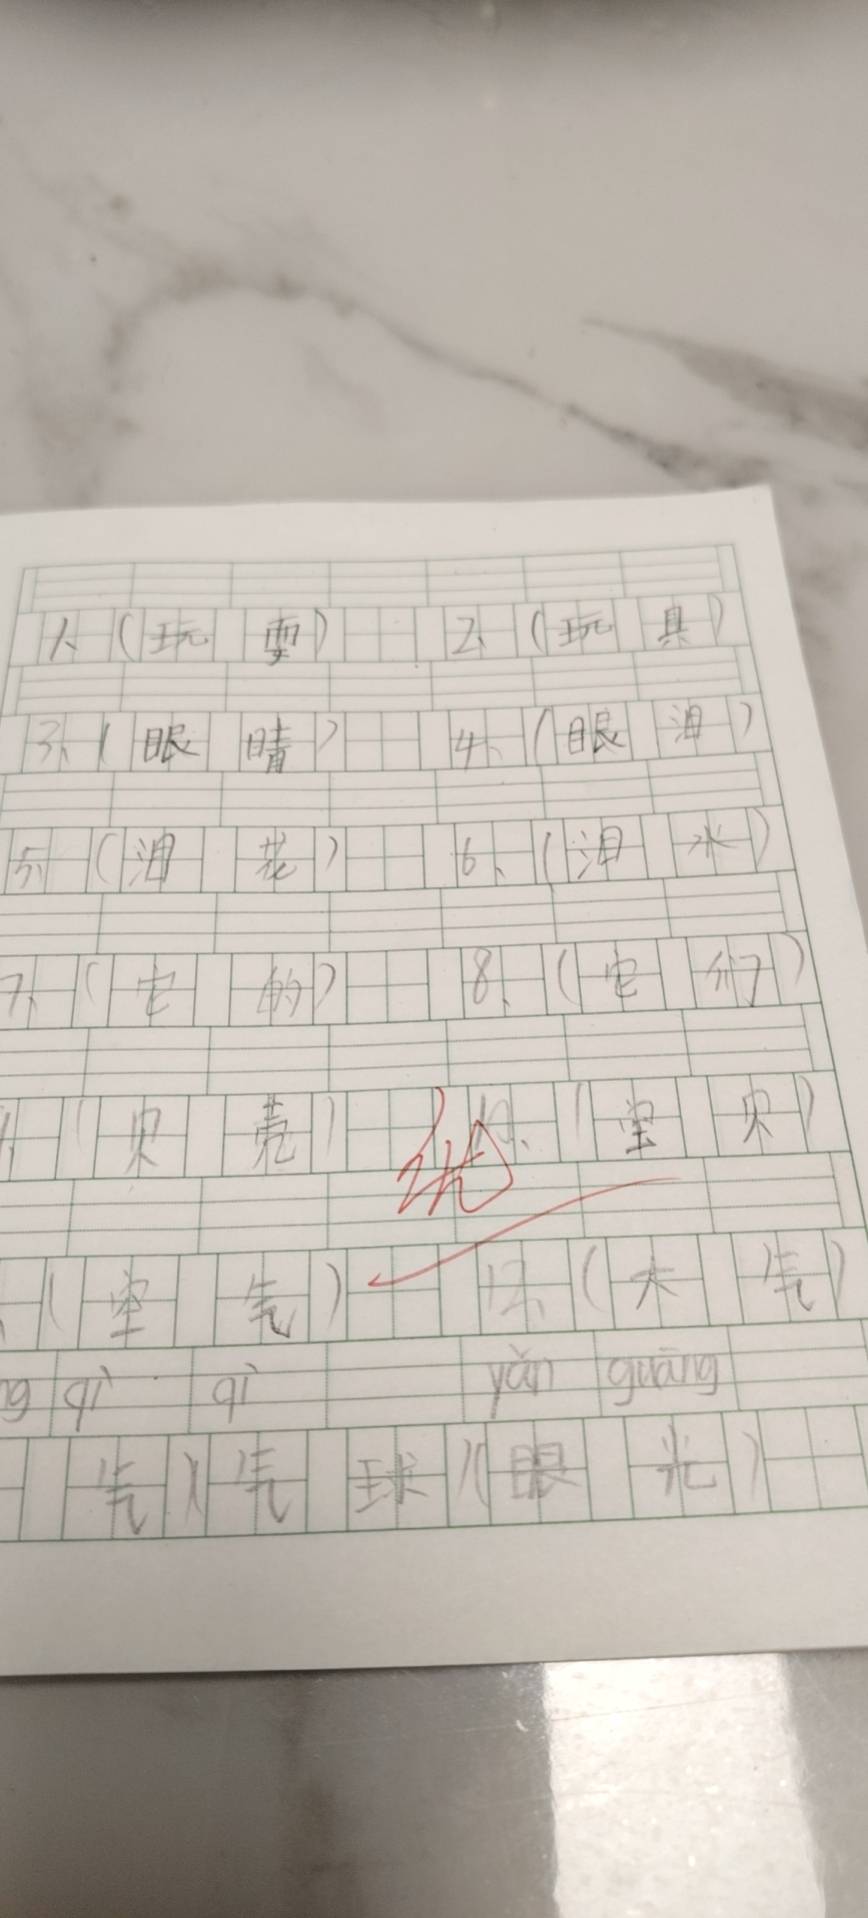 1、(玩耍) 2、(玩具)
3、(眼晴) 4、(眼泪)
5、(泪花) 6、(泪水)
7、(它的) 8、(它们)
(贝壳) 10、(宝贝)
优
(空气) 12、(大气)
qì qì yǎn guāng
气)(气球)(眼光)